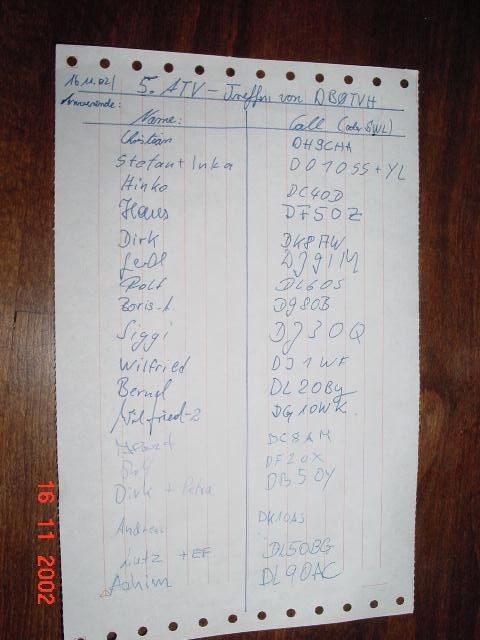 16.11.02 5. ATV - Treffen von DBØTVH
Anwesende: Name: Call (oder SWL)
Christian DH9CHA
Stefan + Inka DO1OSS + YL
Hinko DC4OD
Haus DF5OZ
Dirk DK8AW
Gerd DJ9IM
Rolf DL6OS
Boris-A. DG8OB
Siggi DJ3OQ
Wilfried DJ1WF
Bernd DL2OBy
Wilfried-2 DG1OWK
DC8AM
Rolf DF2OX
Dirk + Petra DB5OY
Andreas DK1OAS
Lutz + EF DL5OBG
Achim DL9OAC
16 11 2002